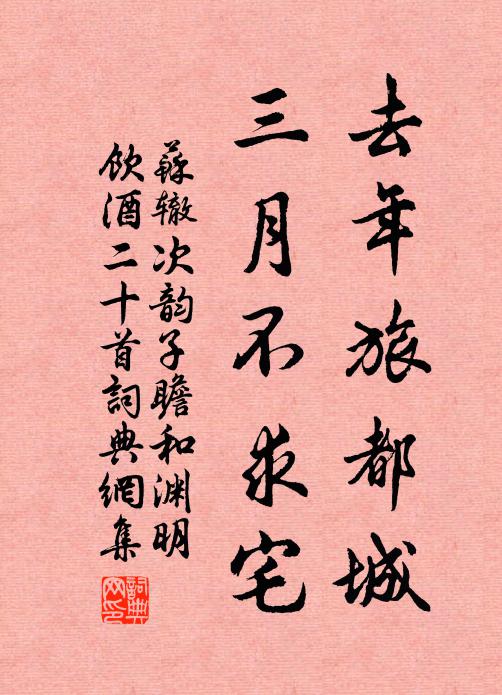 去年旅都城
三月不求宅
蘇辙次韵子瞻和渊明
飲酒二十首詞典網集
詞典
网印